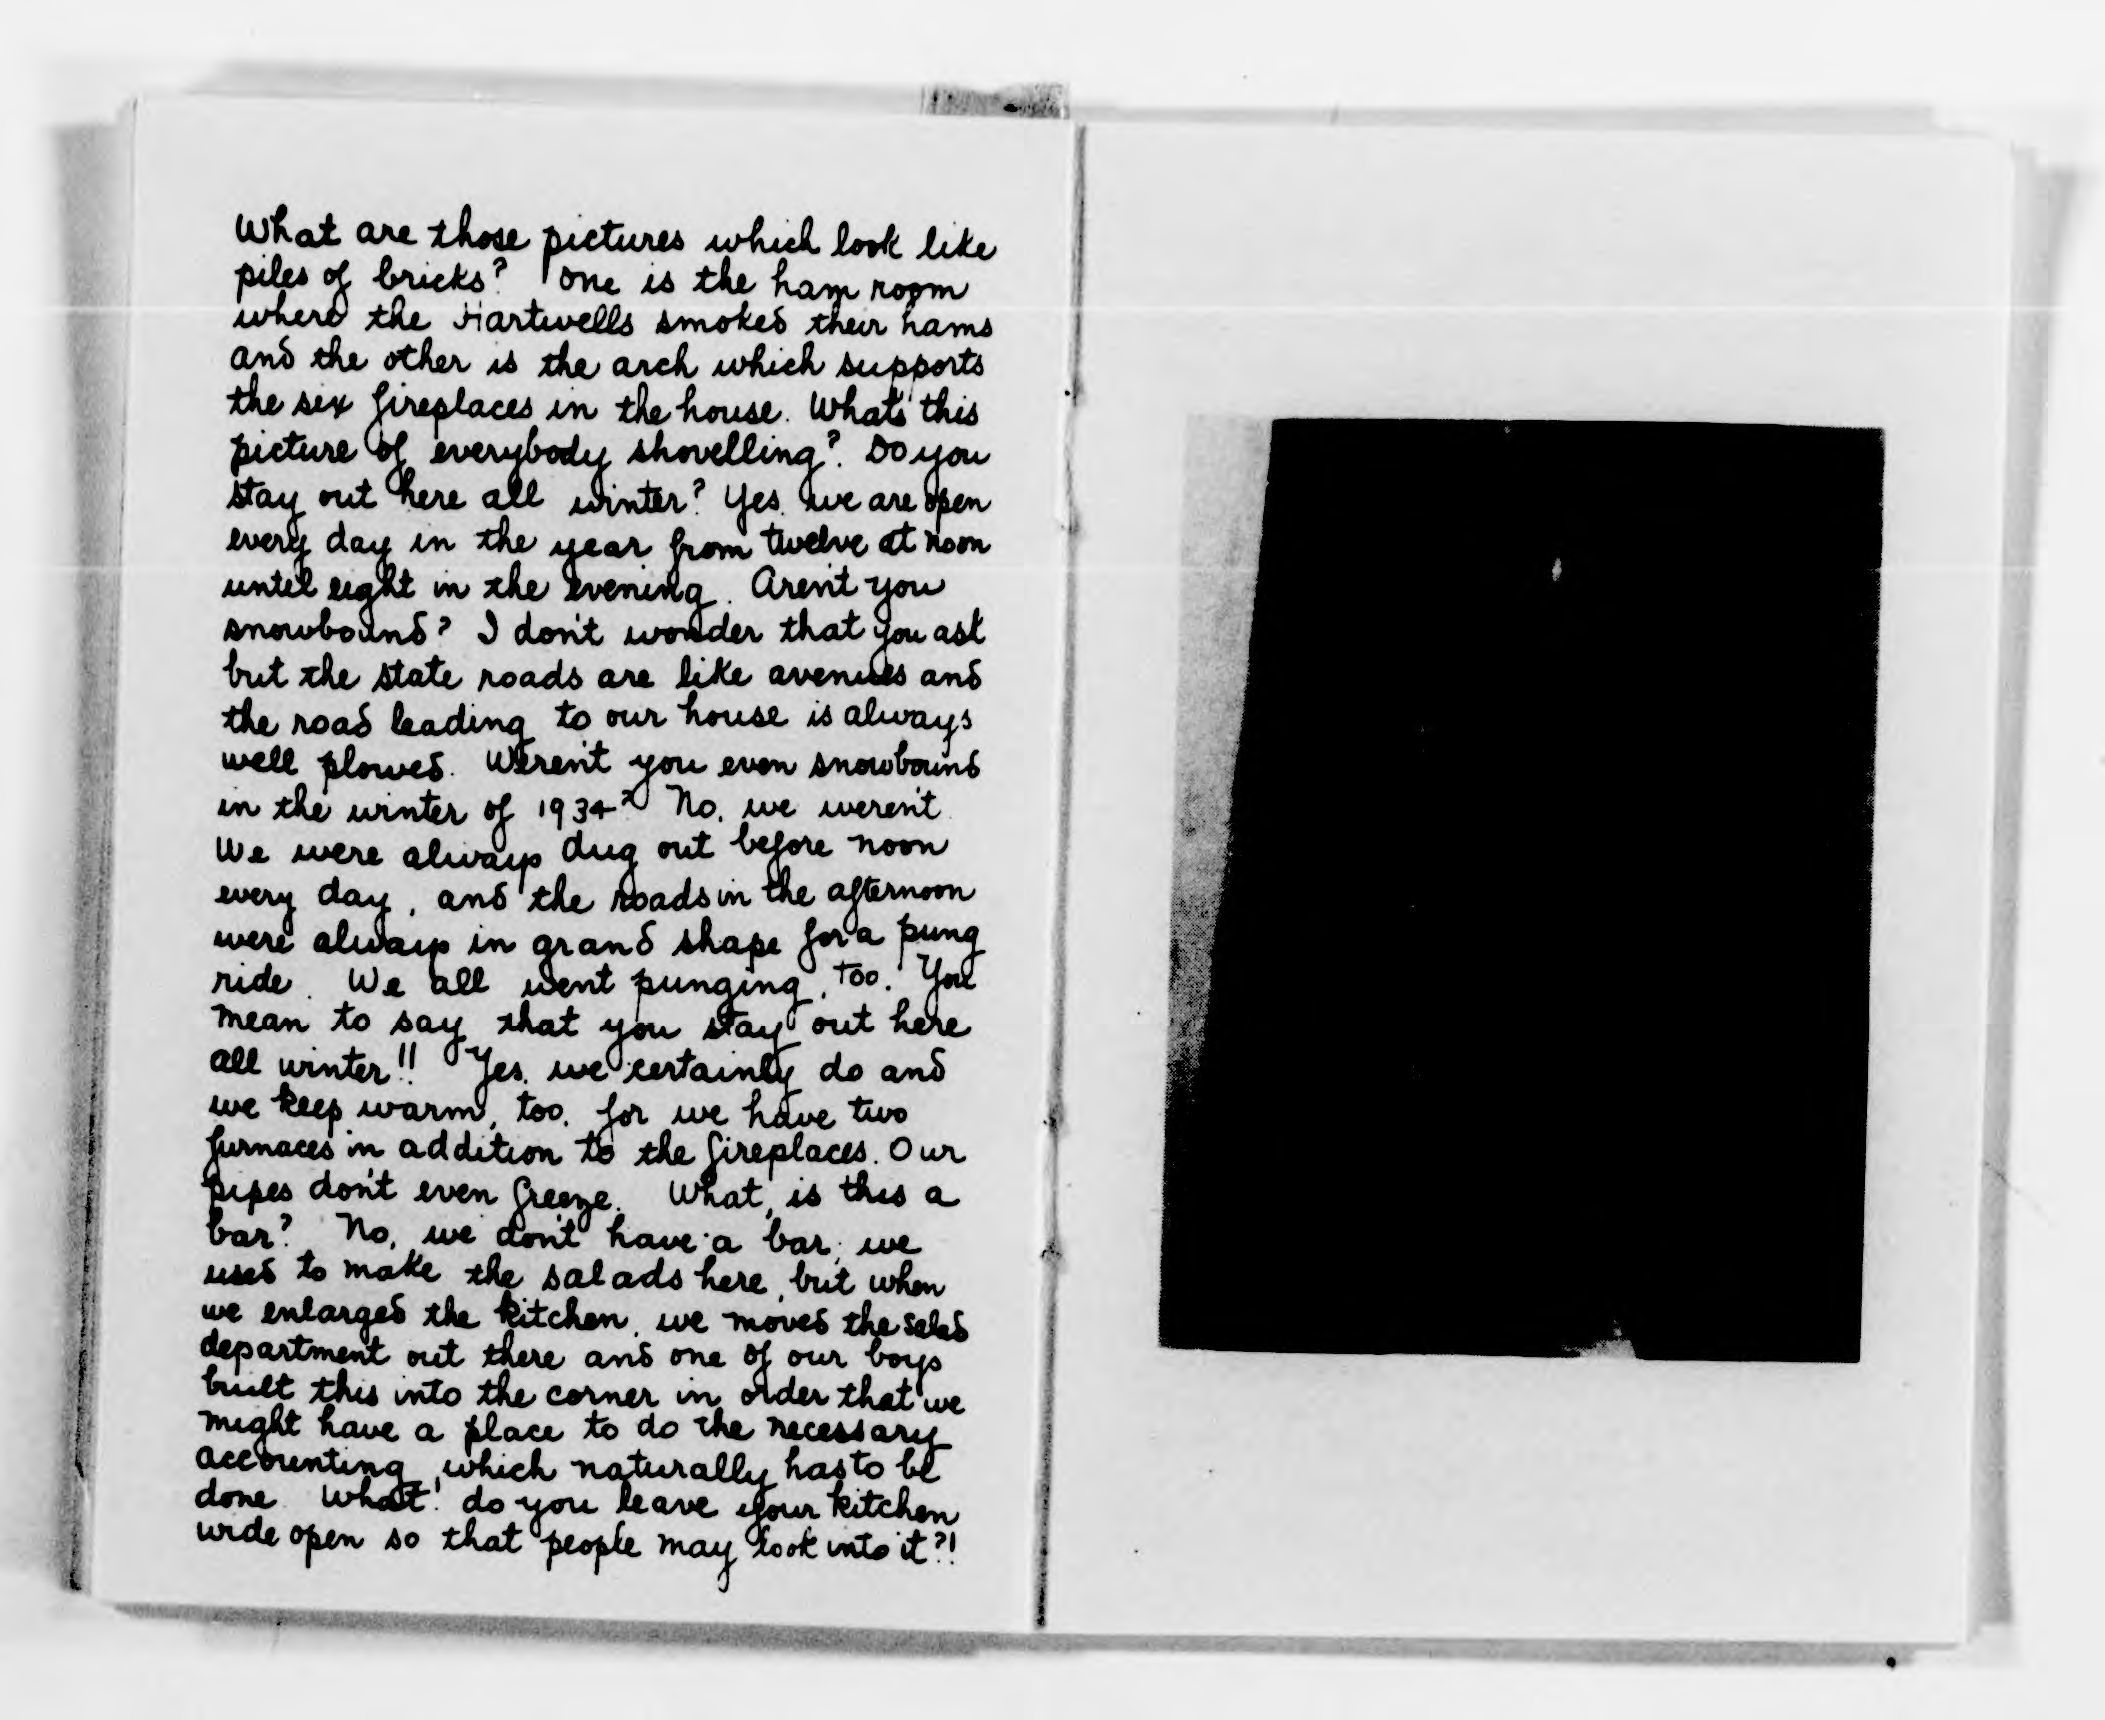 What are those pictures which look like
piles of bricks? One is the ham room
where the Hartwells smoked their hams
and the other is the arch which supports
the six fireplaces in the house. What's this
picture of everybody shovelling? Do you
stay out here all winter? Yes, we are open
every day in the year from twelve at noon
until eight in the evening. Aren't you
snowbound? I don't wonder that you ask
but the state roads are like avenues and
the road leading to our house is always
well plowed. Weren't you even snowbound
in the winter of 1934? No, we weren't
We were always dug out before noon
every day, and the roads in the afternoon
were always in grand shape for a pung
ride. We all went punging, too. You
mean to say that you stay out here
all winter!! Yes, we certainly do and
we keep warm, too, for we have two
furnaces in addition to the fireplaces. Our
pipes don't even freeze. What, is this a
bar? No, we don't have a bar; we
used to make the salads here, but when
we enlarged the kitchen, we moved the salad
department out there and one of our boys
built this into the corner in order that we
might have a place to do the necessary
accounting, which naturally has to be
done. What! do you leave your kitchen
wide open so that people may look into it?!